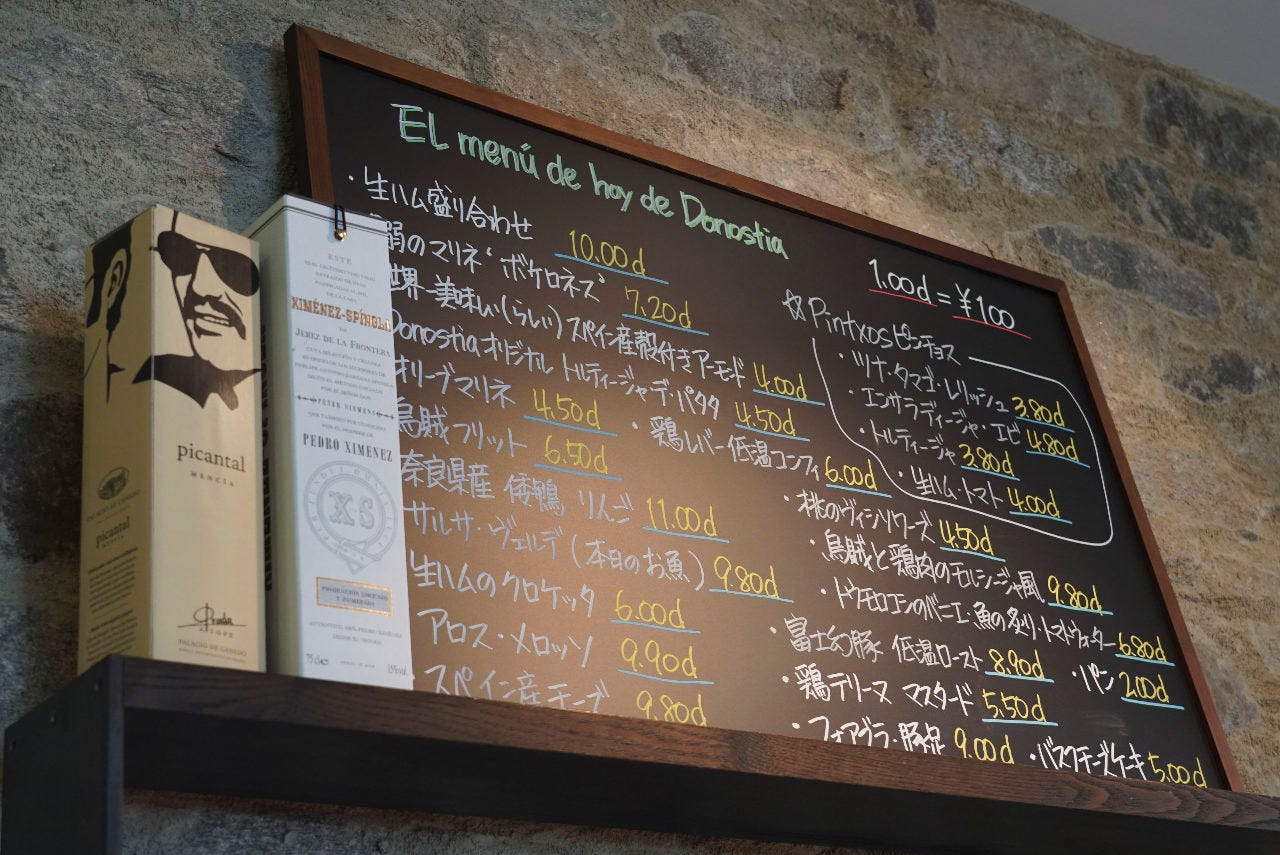 EL menú de hoy de Donostia
・生ハム盛り合わせ 10.00d
のマリネ"ボケロネス" 7.20d
美味い(らしい)スペイン産殻付きアーモンド 4.00d
Donostiaオリジナル トルティージャ・デ・パタタ 4.50d
オリーブマリネ 4.50d ・鶏レバー低温コンフィ 6.00d
烏賊フリット 6.50d
奈良県産 倭鴨 りんご 11.00d
サルサ・ヴェルデ(本日のお魚) 9.80d
生ハムのクロケッタ 6.00d
アロス・メロッソ 9.90d
スペイン産チーズ 9.80d
1.00d = ¥100
☆Pintxosピンチョス
・ツナ・タマゴ・レリッシュ 3.80d
・エンサラディージャ・エビ 4.80d
・トルティージャ 3.80d
・生ハム・トマト 4.00d
・桃のヴィシソワーズ 4.50d
・烏賊と鶏肉のモルシージャ風 9.80d
・トウモロコシのバニエ・魚の炙り・トマトウォーター 6.80d
・富士幻豚 低温ロースト 8.90d ・パン 2.00d
・鶏テリーヌ マスタード 5.50d
・フォアグラ・豚足 9.00d ・バスクチーズケーキ 5.00d
picantal
MENCIA
picantal
PALACIO DE CANEDO
ESTE
XIMÉNEZ-SPÍNOLA
DE
JEREZ DE LA FRONTERA
PEDRO XIMENEZ
XS
PRODUCCIÓN LIMITADA
Y NUMERADA
75 cl
15%